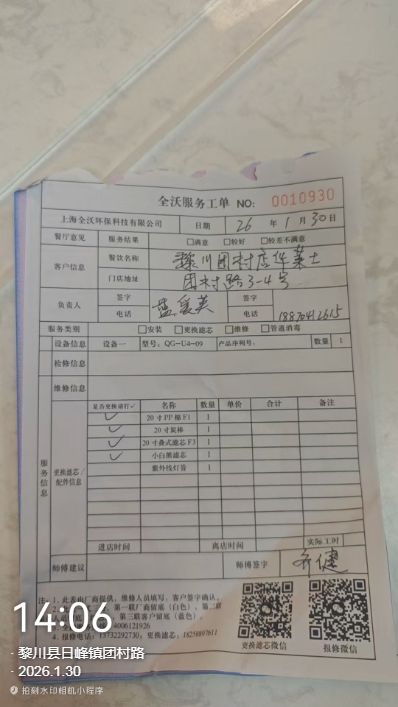 全沃服务工单 NO: 0010930
上海全沃环保科技有限公司 日期 26 年 1 月 30 日
餐厅意见 服务结果 □满意 □较好 □较差不满意
客户信息 餐饮名称 黎川团村店华莱士
门店地址 团村路3-4号
负责人 签字 蓝爱英 签字
电话 电话 18870412615
服务类别 □安装 □更换滤芯 □维修 □管道消毒
设备信息 设备一 型号: QG-U4-09 产品序列号: 数量 1
检修信息
维修信息
服务信息 更换滤芯/配件信息
是否更换请打✓ 名称 数量 单价 合计 备注
✓ 20寸PP棉F1 1
✓ 20寸炭棒 1
✓ 20寸叠式滤芯F3 1
✓ 小白熊滤芯 1
紫外线灯管 1
进店时间 离店时间 实际工时
师傅建议 师傅签字
注: 1、此表由厂商提供，维修人员填写，客户签字确认。
第一联厂商留底（白色）、第二联
第三联客户留底（蓝色）。
4006121926
4、报修电话: 13732292730，更换滤芯: 18258897611
更换滤芯微信 报修微信
14:06
· 黎川县日峰镇团村路
· 2026.1.30
抢刻水印相机小程序